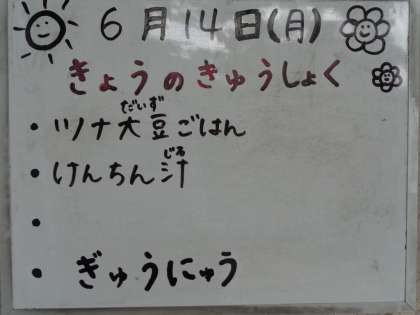 6月14日(月)
きょうのきゅうしょく
・ツナ大豆ごはん
だいず
・けんちん汁
じる
・
・ぎゅうにゅう